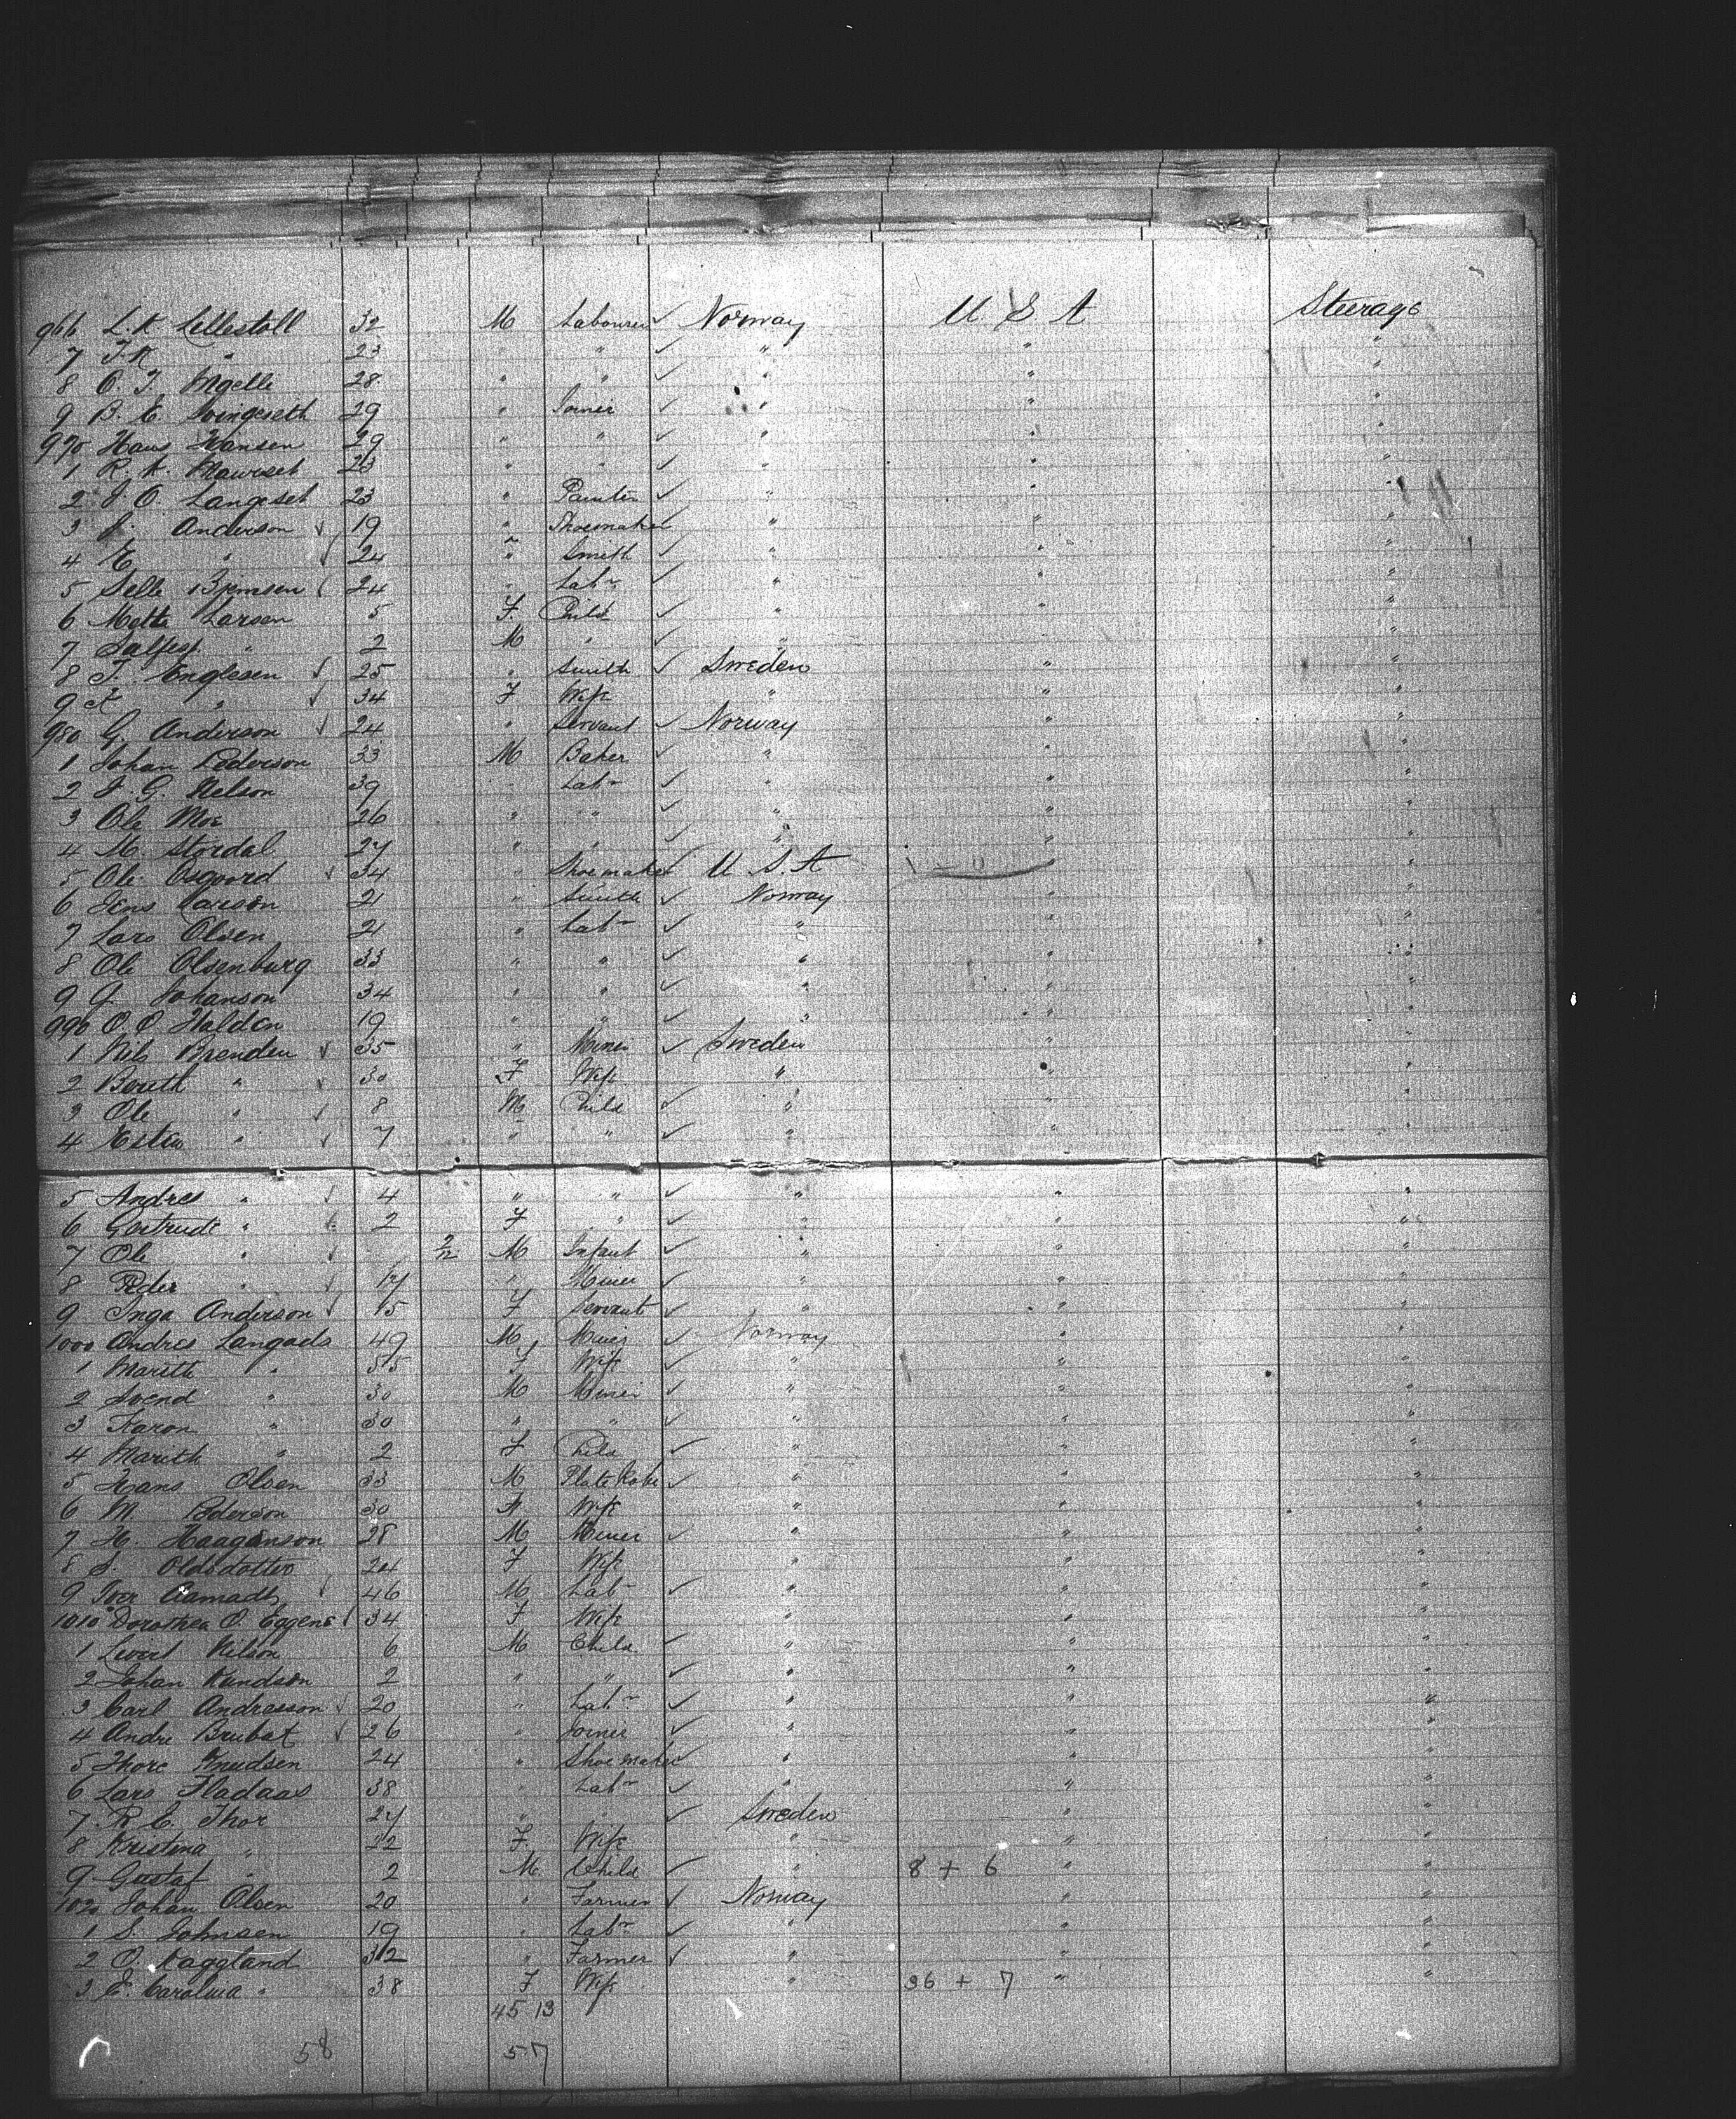 966 L. K. Lillestoll 32 M Labourer ✓ Norway U. S. A Steerage
7 T. K " 23 " " ✓ " " "
8 O. T. Mgelle 28 " " ✓ " " "
9 B. E. Svingeseth 29 " Joiner ✓ " " "
970 Hans Hansen 29 " " ✓ " " "
1 R. K. 23 " " ✓ " " "
2 J O. Langeset 23 " Painter ✓ " " "
3 J. Anderson ✓ 19 " Shoemaker ✓ " " "
4 E " ✓ 24 " Smith ✓ " " "
5 Selle Bjensen 24 " Labr ✓ " " "
6 Mette Larsen 5 F. Child ✓ " " "
7 " 2 M " ✓ " " "
8 T. Englesen ✓ 25 " Smith ✓ Sweden " "
9 " ✓ 34 F Wife " " "
980 G. Anderson ✓ 24 " Servant ✓ Norway " "
1 Johan Pederson 33 M Baker ✓ " " "
2 J. G. Nelson 39 " Labr ✓ " " "
3 Ole Moe 26 " " ✓ " " "
4 M. Stordal 27 " " ✓ " " "
5 Ole Osgoord ✓ 34 " Shoemaker ✓ U. S. A "
6 Jens Larson 21 " Smith ✓ Norway " "
7 Lars Olsen 21 " Labr ✓ " " "
8 Ole Olsenburg 33 " " ✓ " " "
9 G. Johanson 34 " " ✓ " " "
990 O. O Halden 19 " " ✓ " " "
1 Nils Brenden ✓ 35 " Miner ✓ Sweden " "
2 Bereth " ✓ 30 F Wife " " "
3 Ole " ✓ 8 M Child ✓ " " "
4 " ✓ 7 " " ✓ " " "
5 Andres " ✓ 4 " " ✓ " " "
6 Gertrude " ✓ 2 F " ✓ " " "
7 Ole " ✓ 2/12 M Infant ✓ " " "
8 Peder " ✓ 17 " Miner ✓ " " "
9 Inga Anderson ✓ 15 F Servant ✓ " " "
1000 Andres Langads 49 M Miner ✓ Norway " "
1 Mareth " 55 F Wife ✓ " " "
2 Svend " 30 M Miner ✓ " " "
3 Karon " 30 " " ✓ " " "
4 Marith " 2 F Child ✓ " " "
5 Hans Olsen 33 M ✓ " " "
6 M. Pederson 30 F Wife " " "
7 H. Haaganson 28 M Miner ✓ " " "
8 S. Oldsdotter 24 F Wife " " "
9 Iver 46 M Labr ✓ " " "
1010 Dorothea O. Eggene 34 F Wife " " "
1 Sivert Nilson 6 M Child ✓ " " "
2 Johan Kundson 2 " " ✓ " " "
3 Carl Andresson ✓ 20 " Labr ✓ " " "
4 Andr Brubat ✓ 26 " Joiner ✓ " " "
5 Thore Knudsen 24 " Shoemaker ✓ " " "
6 Lars Fladaas 38 " Labr ✓ " " "
7 R C. Thor 27 " " ✓ Sweden " "
8 Kristina " 22 F. Wife " " "
9 Gustaf " 2 M. Child ✓ " 8 + 6 " "
1020 Johan Olsen 20 " Farmer ✓ Norway " "
1 S. Johnsen 19 " Labr ✓ " " "
2 O. Haggland 32 " Farmer ✓ " " "
3 E. Carolina " 38 F Wife " 36 + 7 " "
45 13
58 57